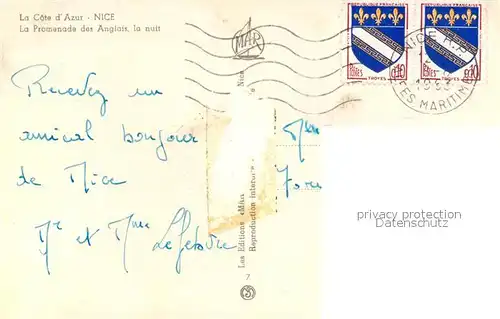 La Côte d'Azur - NICE
La Promenade des Anglais, la nuit
MAR
REPUBLIQUE FRANÇAISE
POSTES 0,10
TROYES
REPUBLIQUE FRANÇAISE
POSTES 0,10
TROYES
NICE R.P.
ALPES MARITIMES
Recevez un
amical bonjour
de Nice
Mr et Mme Lefebvre
Mme
Les Editions «Mar» Nice
Reproduction interdite
7
privacy protection
Datenschutz